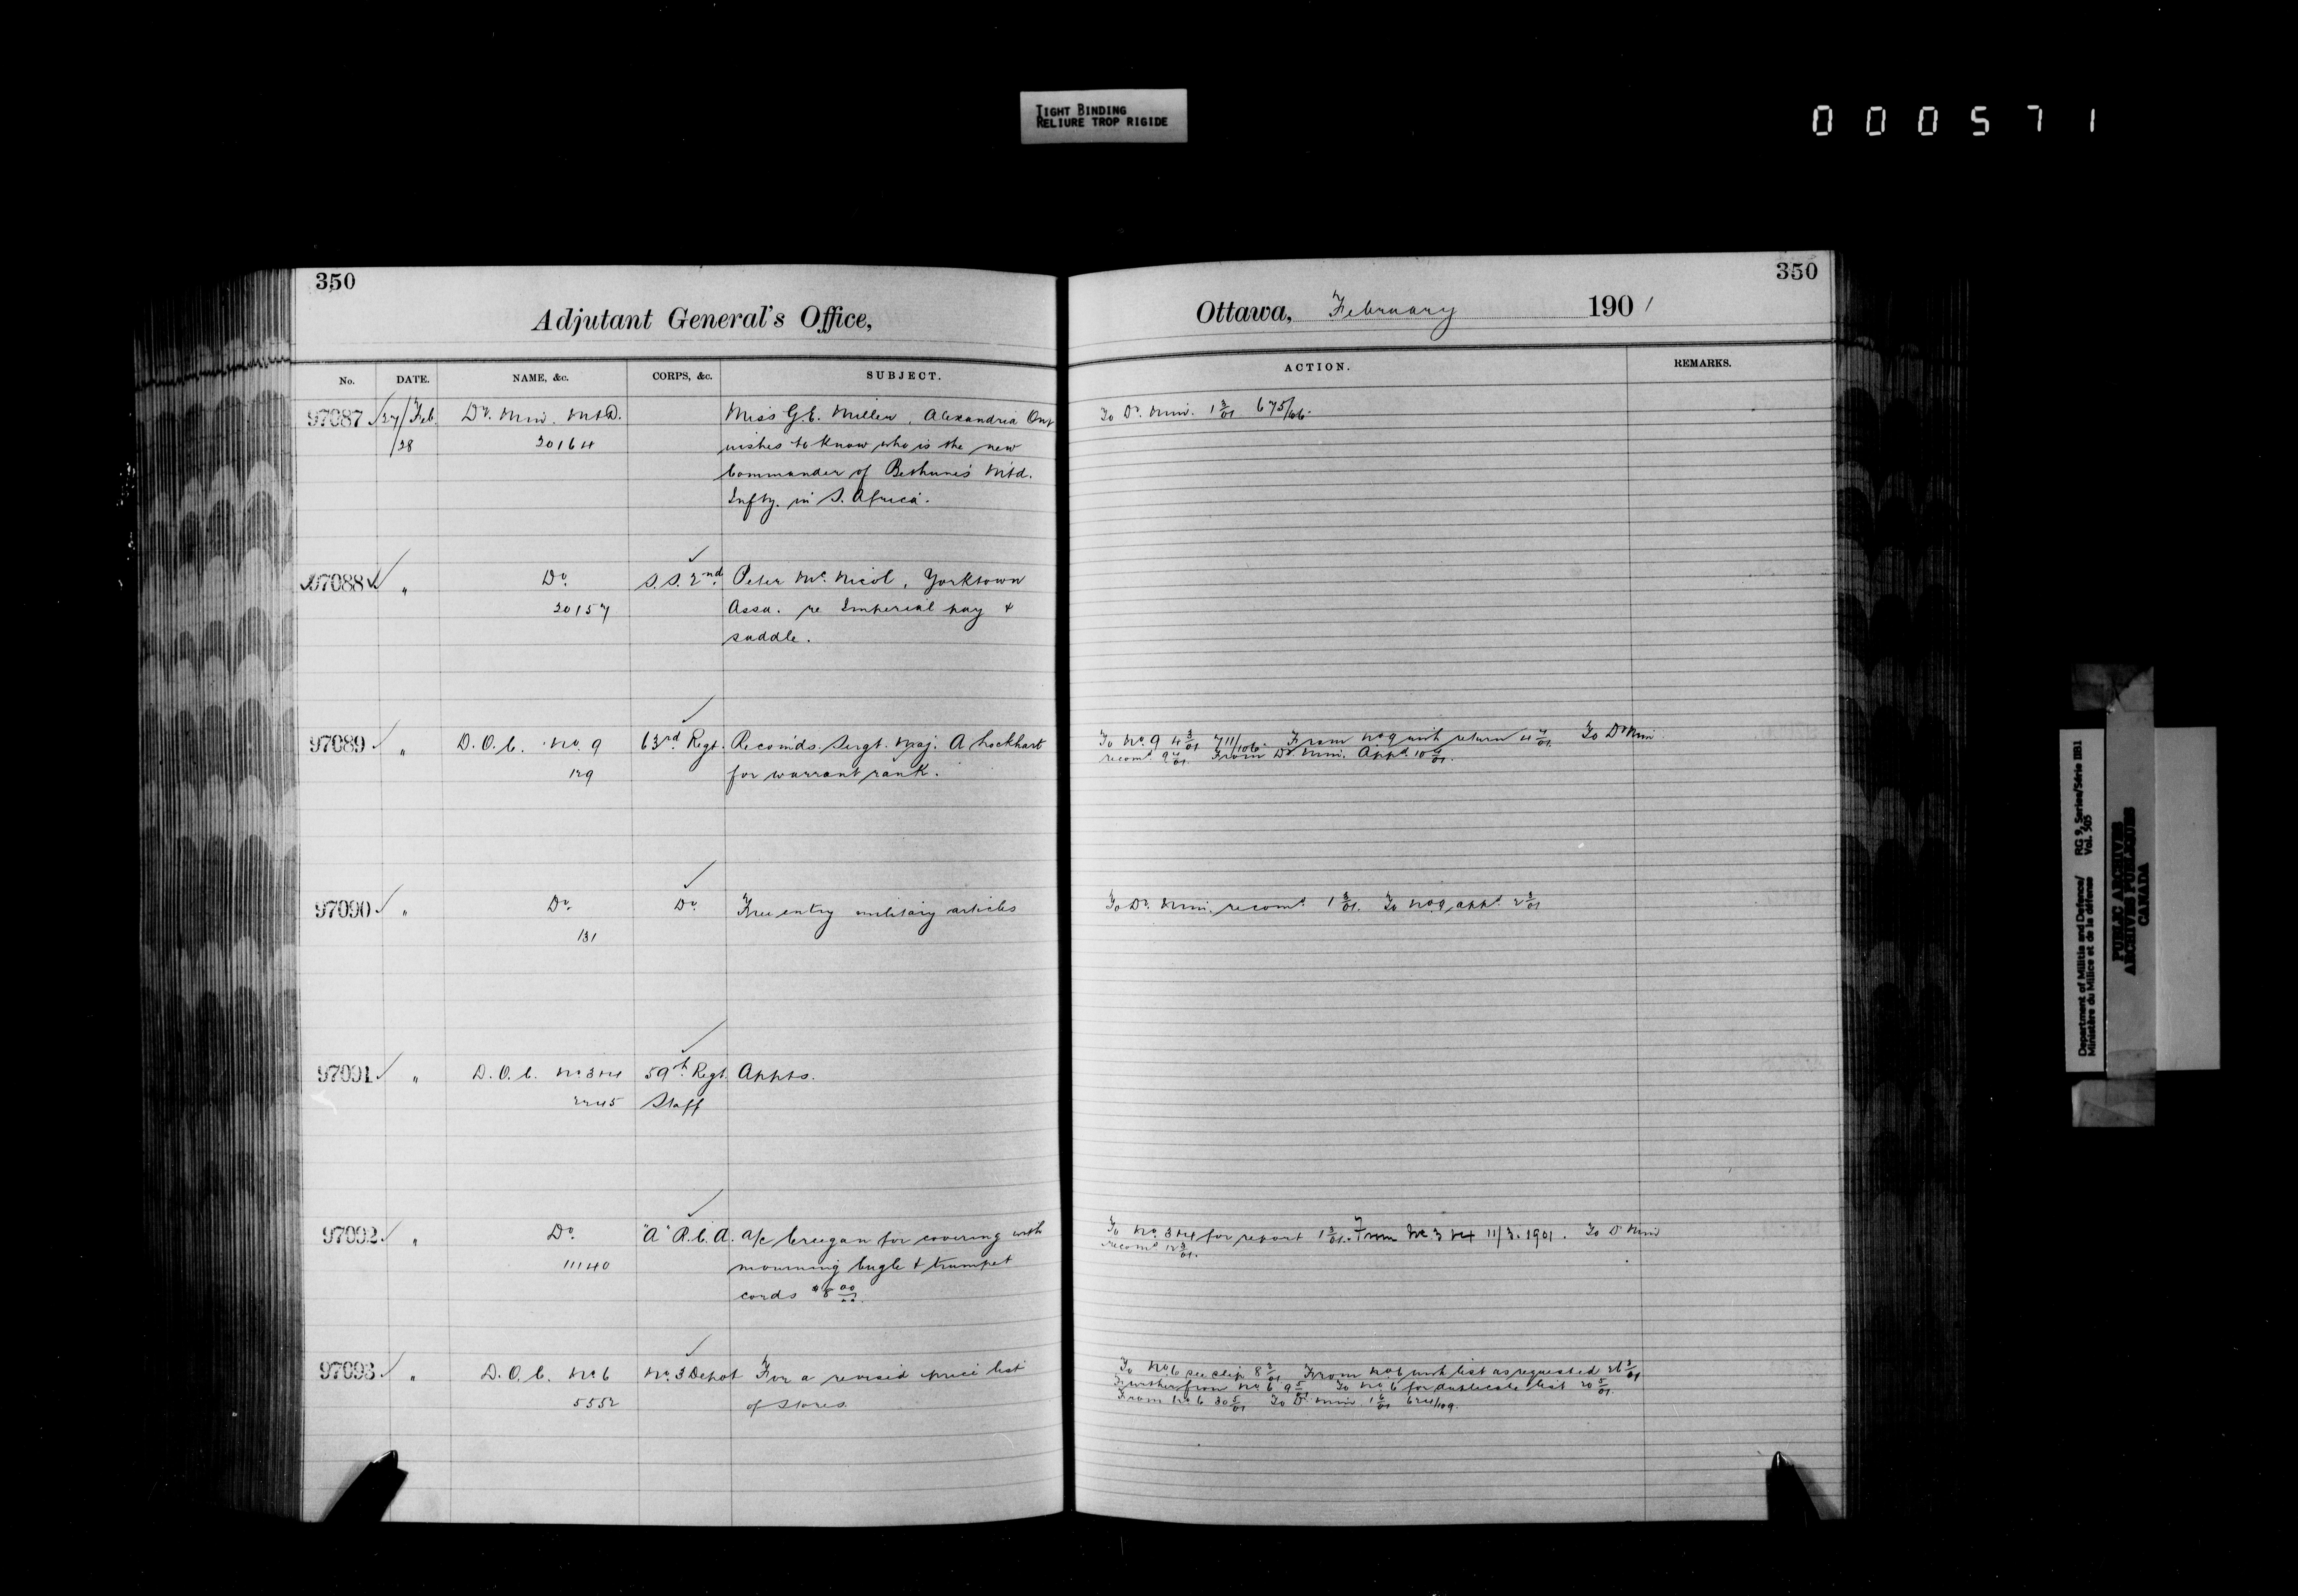 TIGHT BINDING
RELIURE TROP RIGIDE
000571
350
Adjutant General's Office,
No. DATE. NAME, &c. CORPS, &c. SUBJECT.
97087 27/Feb. Dr. Min. M&D. Miss G.E. Miller, Alexandria Ont
/28 20164 wishes to know who is the new
Commander of Bethune's Mtd.
Infty. in S. Africa.
97088 " Do. S.S. 2nd. Peter McNicol, Yorktown
20157 Assa. re Imperial pay &
saddle.
97089 " D.O.C. No. 9 63rd Regt. Recomds. Sergt. Maj. A Lockhart
129 for warrant rank.
97090 " Do. Do. Free entry military articles
131
97091 " D.O.C. No 3 & 4 59th Regt. Appts.
2245 Staff
97092 " Do. "A" R.C.A. a/c Creegan for covering with
11140 mourning bugle & trumpet
cords $8 00/..
97093 " D.O.C. No 6 No. 3 Depot For a revised price list
5552 of Stores.
350
Ottawa, February 1901
ACTION. REMARKS.
To Dr. Min. 1 3/01 675/66.
To No. 9 4 3/01 711/106. From No 9 with return 4 4/01. To Dr Min
recomd 9 4/01. From Dr. Min. Appd 10 4/01.
To Dr. Min. recomd. 1 3/01. To No 9 appd. 2 3/01
To No. 3 & 4 for report 1 3/01. From No 3 & 4 11/3.1901. To Dr Min
recomd 12 3/01.
To No. 6 see slip 8 3/01 From No 6 with list as requested 26 3/01
Further from No. 6 9 5/01 To No. 6 for duplicate list 20 5/01.
From No 6 30 5/01 To Dr. Min 1 6/01 624/109.
Department of Militia and Defence/ RG 9, Series/Série IIB1
Ministère du Milice et de la défense Vol. 505
PUBLIC ARCHIVES
ARCHIVES PUBLIQUES
CANADA